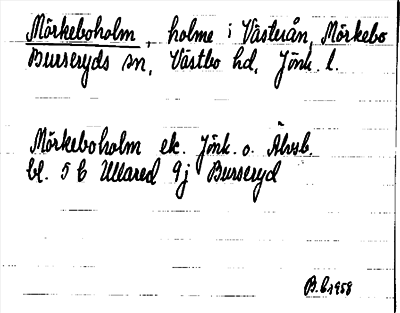 Mörkeboholm, holme i Västerån, Mörkebo
Burseryds sn, Västbo hd, Jönk. l.
Mörkeboholm ek. Jönk. o. Älvsb.
bl. 5 C Ullared 9j Burseryd
B.C. 1958